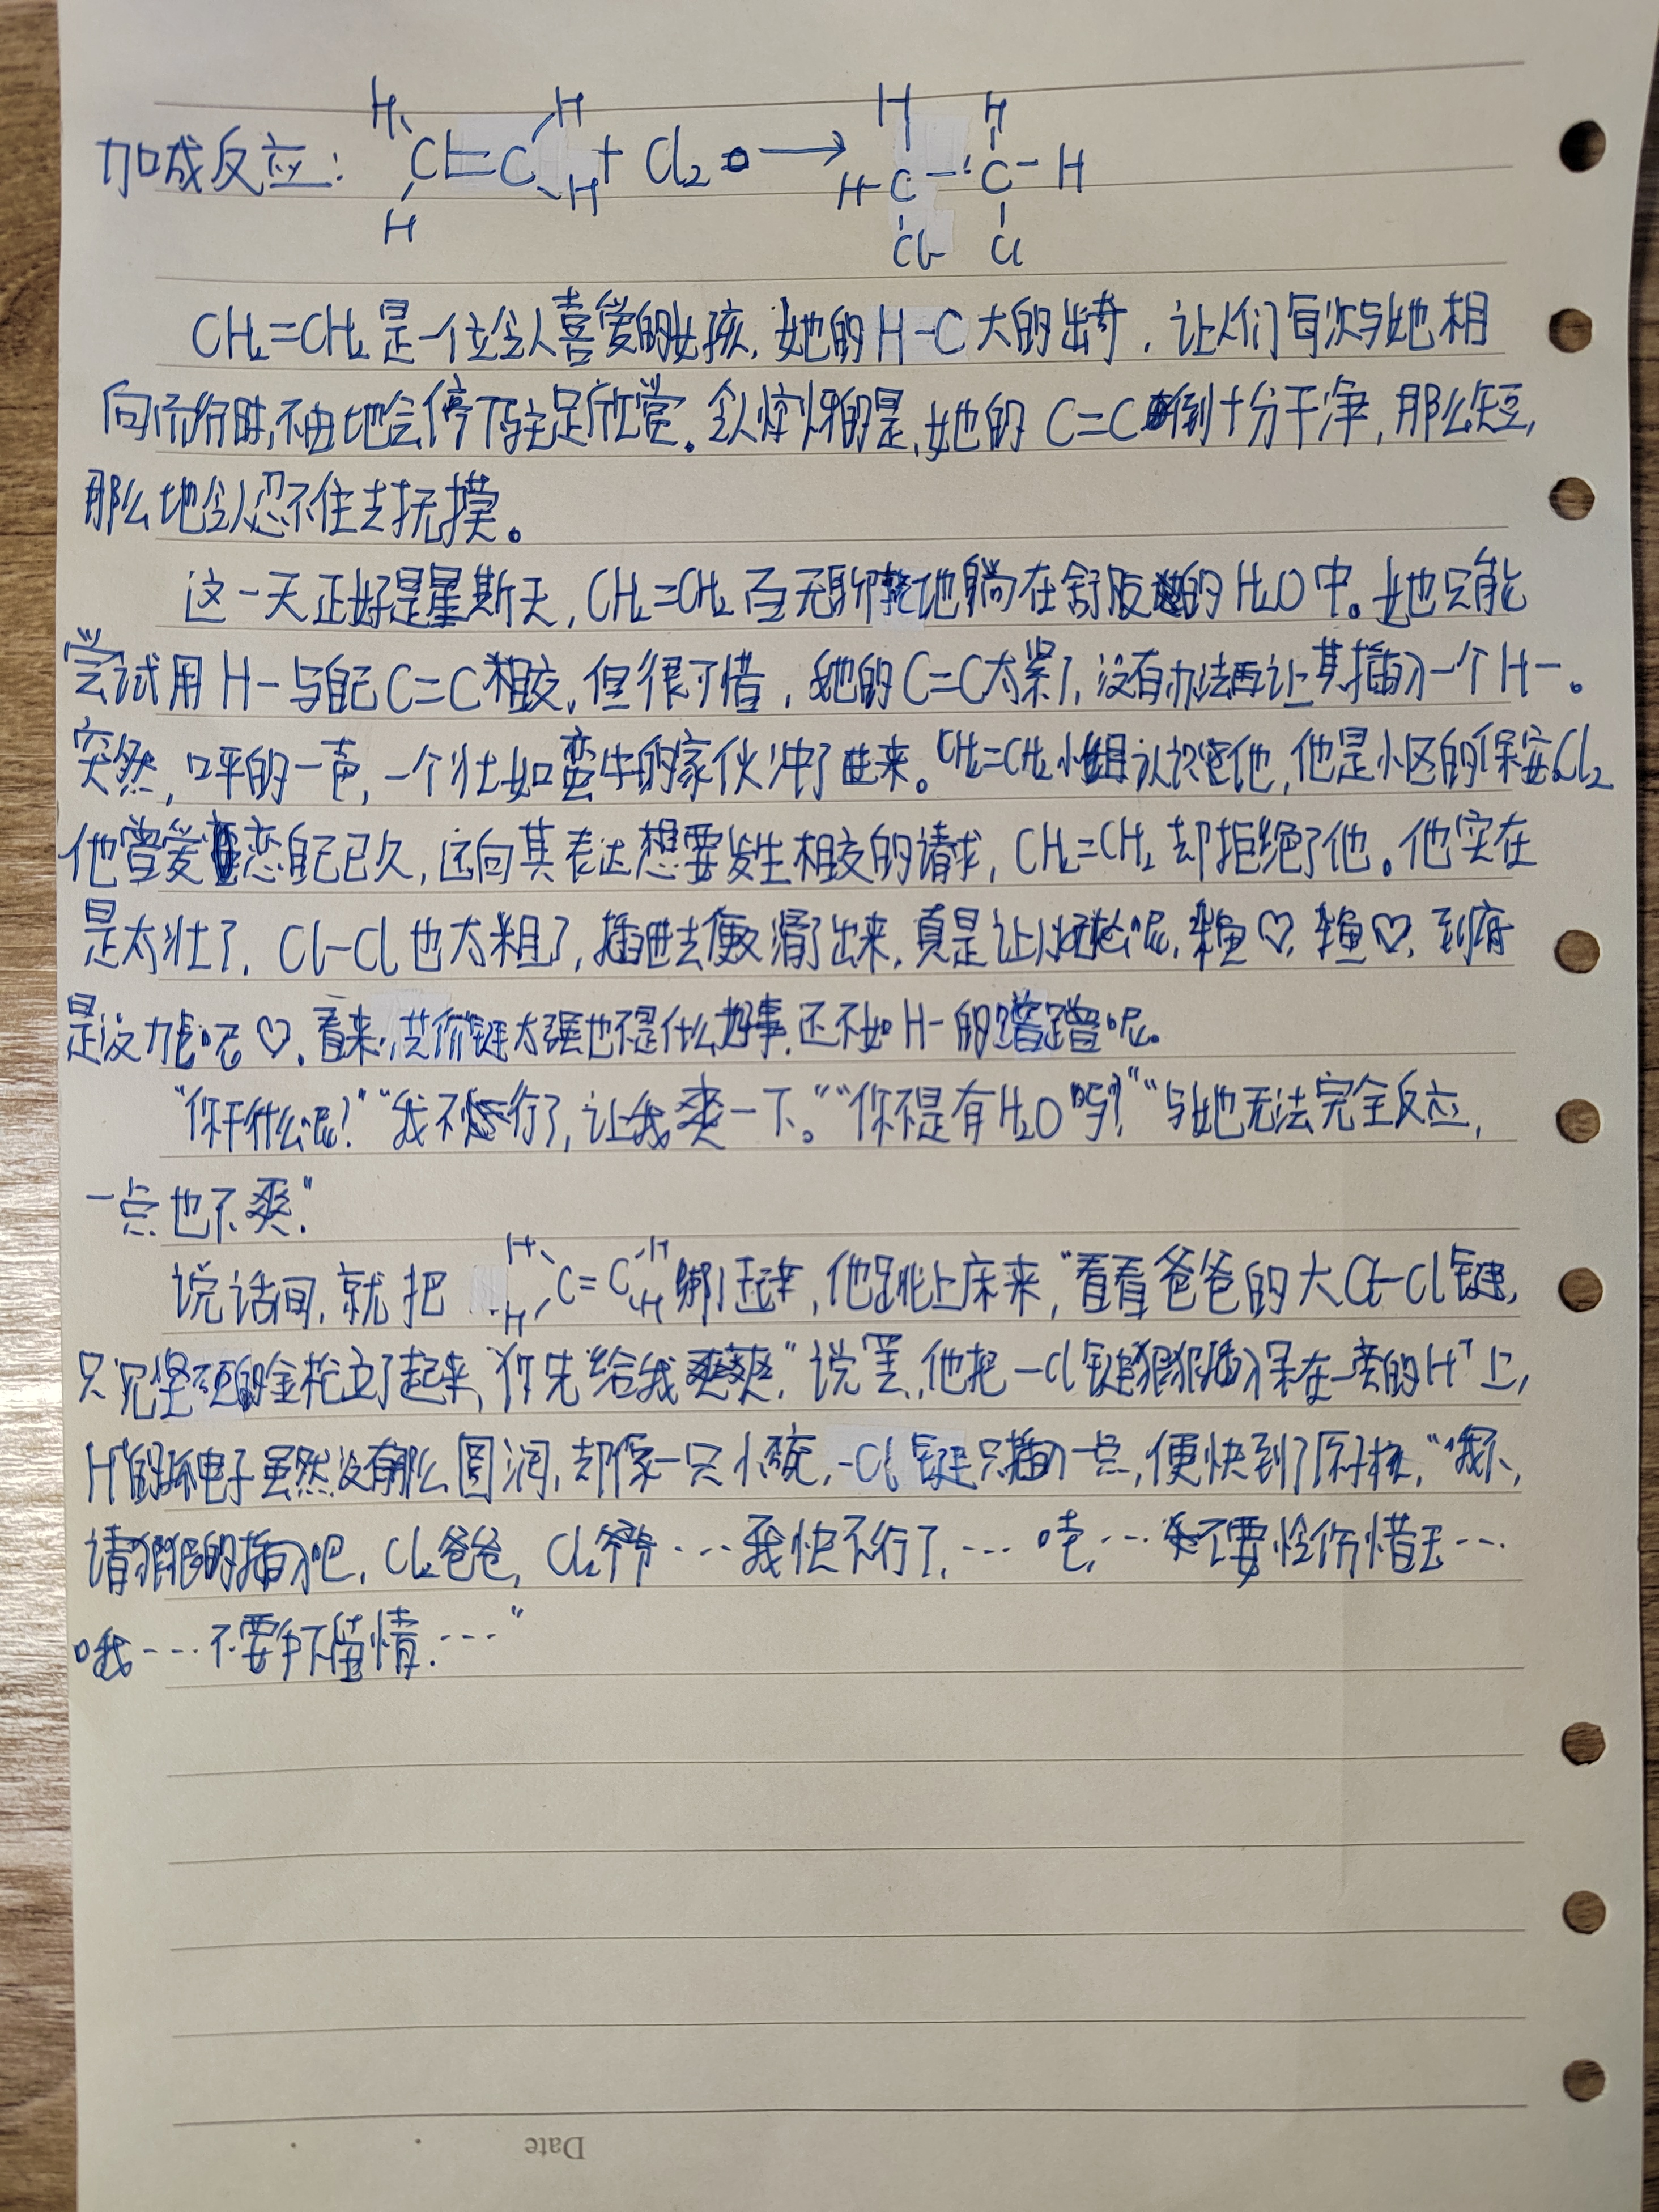 加成反应: H H C=C H H + Cl₂ → H H H-C-C-H Cl Cl
CH₂=CH₂是一位令人喜爱的女孩,她的H-C大的出奇,让人们每次与她相
向而行时,不由地会停下驻足欣赏。令人惊讶的是,她的C=C倒十分干净,那么短,
那么地令人忍不住去抚摸。
这一天正好是星斯天,CH₂=CH₂百无聊地躺在舒服的H₂O中。她只能
尝试用H-与自己C=C相交,但很可惜,她的C=C太紧了,没有办法再让其插入一个H-。
突然,呯的一声,一个壮如蛮牛的家伙冲了进来。CH₂=CH₂小姐认识他,他是小区的保安Cl₂
他曾爱恋自己已久,还向其表达想要发生相交的请求,CH₂=CH₂却拒绝了他。他实在
是太壮了,Cl-Cl也太粗了,插进去便又滑了出来,真是让人呢,杂鱼♡,杂鱼♡,到底
是没力气呢♡,看来,共价键太强也不是什么好事,还不如H-的蹭蹭呢。
“你干什么呢?”“我不行了,让我爽一下。”“你不是有H₂O吗?”“与她无法完全反应,
一点也不爽”
说话间,就把 H H C=C H H 绑了起来,他跳上床来,“看看爸爸的大Cl-Cl键,
只见坚硬的金枪立了起来,你先给我爽爽,”说罢,他把-Cl键狠狠插入呆在一旁的H⁺上,
H⁺的环电子虽然没有那么圆润,却像一只小碗,-Cl键只插入一点,便快到了原子核,“哦,
请狠狠的插入吧,Cl₂爸爸,Cl₂爷爷……我快不行了,……哇,……不要怜伤惜玉……
哦……不要手下留情……”
Date